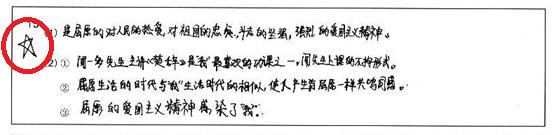 (1) 是屈原的对人民的热爱,对祖国的忠贞,斗志的坚强,强烈的爱国主义精神。
(2) ① 闻一多先生主讲《楚辞》是"我"最喜欢的功课之一,闻先生上课的不拘形式。
② 屈原生活的时代与"我"生活时代的相似,使人产生与屈原一样共鸣同感。
③ 屈原的爱国主义精神感染了"我"。